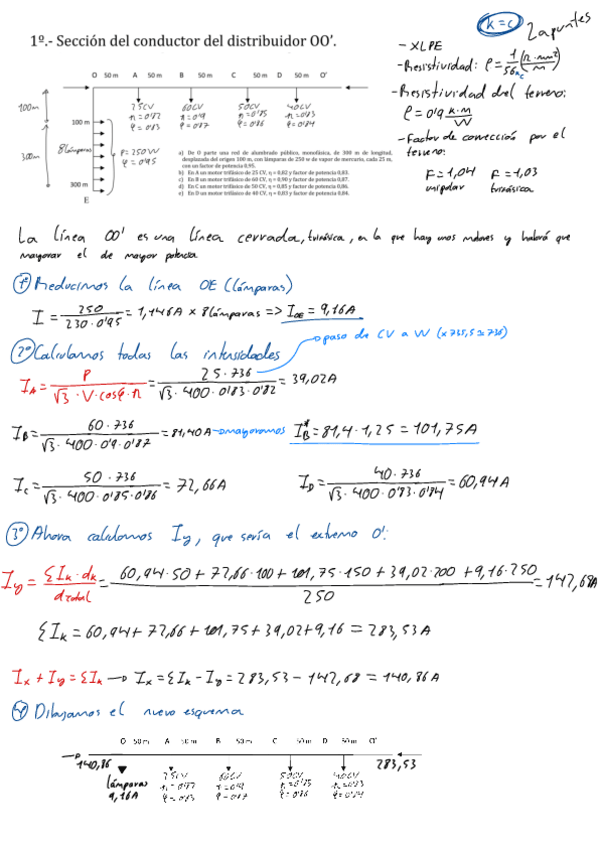 1º.- Sección del conductor del distribuidor OO'.
k=c 2 apuntes
- XLPE
- Resistividad: ρ = 1/56 (Ω·mm²/m)
- Resistividad del terreno:
ρ = 0'9 K·m/W
- Factor de corrección por el
terreno:
F=1,04 F=1,03
unipolar trifásica
O 50 m A 50 m B 50 m C 50 m D 50 m O'
25CV 60CV 50CV 40CV
η=0'82 η=0'9 η=0'85 η=0'83
φ=0'83 φ=0'87 φ=0'86 φ=0'84
100m
100 m
300m
8 lámparas
P=250W
φ=0'95
300 m
E
a) De O parte una red de alumbrado público, monofásica, de 300 m de longitud,
desplazada del origen 100 m, con lámparas de 250 w de vapor de mercurio, cada 25 m,
con un factor de potencia 0,95.
b) En A un motor trifásico de 25 CV, η = 0,82 y factor de potencia 0,83.
c) En B un motor trifásico de 60 CV, η = 0,90 y factor de potencia 0,87.
d) En C un motor trifásico de 50 CV, η = 0,85 y factor de potencia 0,86.
e) En D un motor trifásico de 40 CV, η = 0,83 y factor de potencia 0,84.
La línea OO' es una línea cerrada, trifásica, en la que hay unos motores y habrá que
mayorar el de mayor potencia
1º Reducimos la línea OE (lámparas)
I = 250/(230·0'95) = 1,146A × 8 lámparas => I_OE = 9,16A
2º Calculamos todas las intensidades
paso de CV a W (x 735,5 ≈ 736)
I_A = P/(√3·V·cosφ·η) = 25·736/(√3·400·0'83·0'82) = 39,02A
I_B = 60·736/(√3·400·0'9·0'87) = 81,40A → mayoramos I_B* = 81,4·1,25 = 101,75A
I_C = 50·736/(√3·400·0'85·0'86) = 72,66A I_D = 40·736/(√3·400·0'83·0'84) = 60,94A
3º Ahora calculamos Iy, que sería el extremo O':
Iy = ΣIk·dk/dtotal = (60,94·50 + 72,66·100 + 101,75·150 + 39,02·200 + 9,16·250)/250 = 142,68A
ΣIk = 60,94 + 72,66 + 101,75 + 39,02 + 9,16 = 283,53A
Ix + Iy = ΣIk → Ix = ΣIk - Iy = 283,53 - 142,68 = 140,86A
4º Dibujamos el nuevo esquema
O 50 m A 50 m B 50 m C 50 m D 50 m O'
140,86 283,53
lámparas 25CV 60CV 50CV 40CV
9,16A η=0'82 η=0'9 η=0'85 η=0'83
φ=0'83 φ=0'87 φ=0'86 φ=0'84